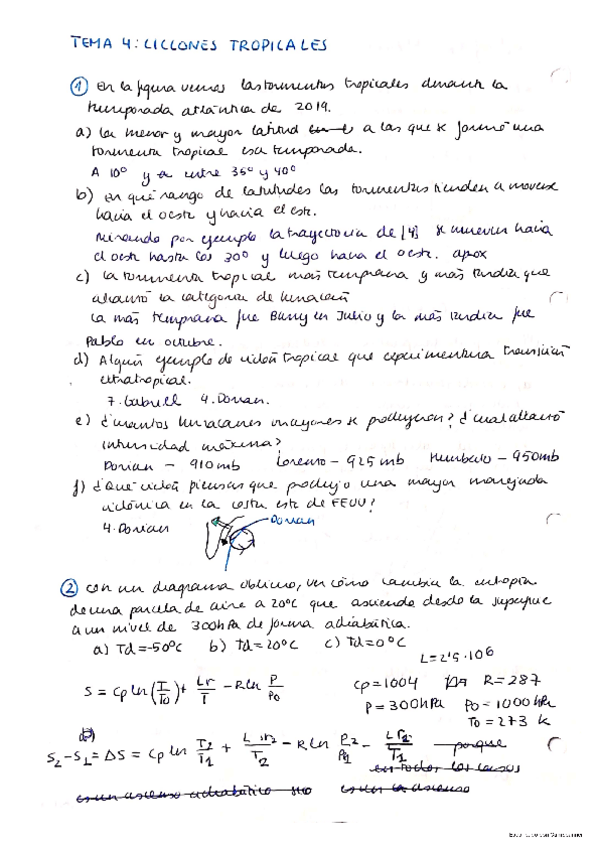 TEMA 4: CICLONES TROPICALES
① En la figura vemos las tormentas tropicales durante la
temporada atlántica de 2019.
a) La menor y mayor latitud a las que se formó una
tormenta tropical esa temporada.
A 10º y a entre 35º y 40º
b) En qué rango de latitudes las tormentas tienden a moverse
hacia el oeste y hacia el este.
Mirando por ejemplo la trayectoria de [4] se mueven hacia
el oeste hasta los 30º y luego hacia el oeste. aprox
c) La tormenta tropical más temprana y más tardía que
alcanzó la categoría de huracán
La más temprana fue Barry en Julio y la más tardía fue
Pablo en octubre.
d) Algún ejemplo de ciclón tropical que experimentara transición
extratropical.
7. Gabriell 4. Dorian.
e) ¿Cuántos huracanes mayores se produjeron? ¿Cuál alcanzó
intensidad máxima?
Dorian - 910 mb Lorenzo - 925 mb Humberto - 950mb
f) ¿Qué ciclón piensas que produjo una mayor marejada
ciclónica en la costa este de EEUU?
4. Dorian Dorian
② Con un diagrama oblicuo, ver cómo cambia la entropía
de una parcela de aire a 20ºC que asciende desde la superficie
a un nivel de 300hPa de forma adiabática.
a) Td=-50ºC b) Td=20ºC c) Td=0ºC
L=2'5·10⁶
S = Cp ln(T/T0) + Lr/T - R ln P/P0 Cp=1004 R=287
P=300hPa P0=1000hPa
T0=273 K
S2-S1=ΔS = Cp ln T2/T1 + L r2/T2 - R ln P2/P1 - L r1/T1 porque
en todos los casos
es un ascenso adiabático